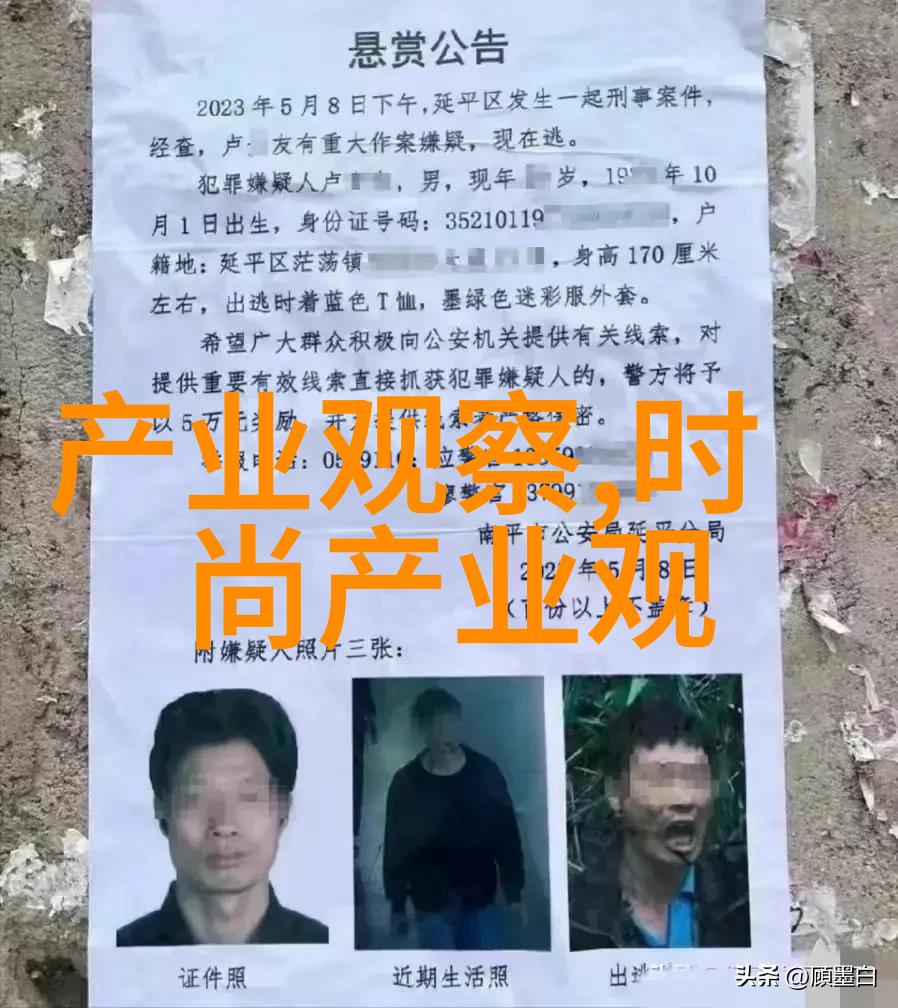 悬赏公告
2023年5月8日下午,延平区发生一起刑事案件,
经查,卢 友有重大作案嫌疑,现在逃。
犯罪嫌疑人卢 ,男,现年 岁,19 年10
月1日出生,身份证号码:35210119 ,户
籍地:延平区茫荡镇 ,身高170厘米
左右,出逃时着蓝色T恤,墨绿色迷彩服外套。
希望广大群众积极向公安机关提供有关线索,对
提供重要有效线索直接抓获犯罪嫌疑人的,警方将予
以5万元奖励,
产业观察,时
尚产业观
南平市公安局延平分局
附嫌疑人照片三张:
证件照
近期生活照
出逃
头条 @顾墨白